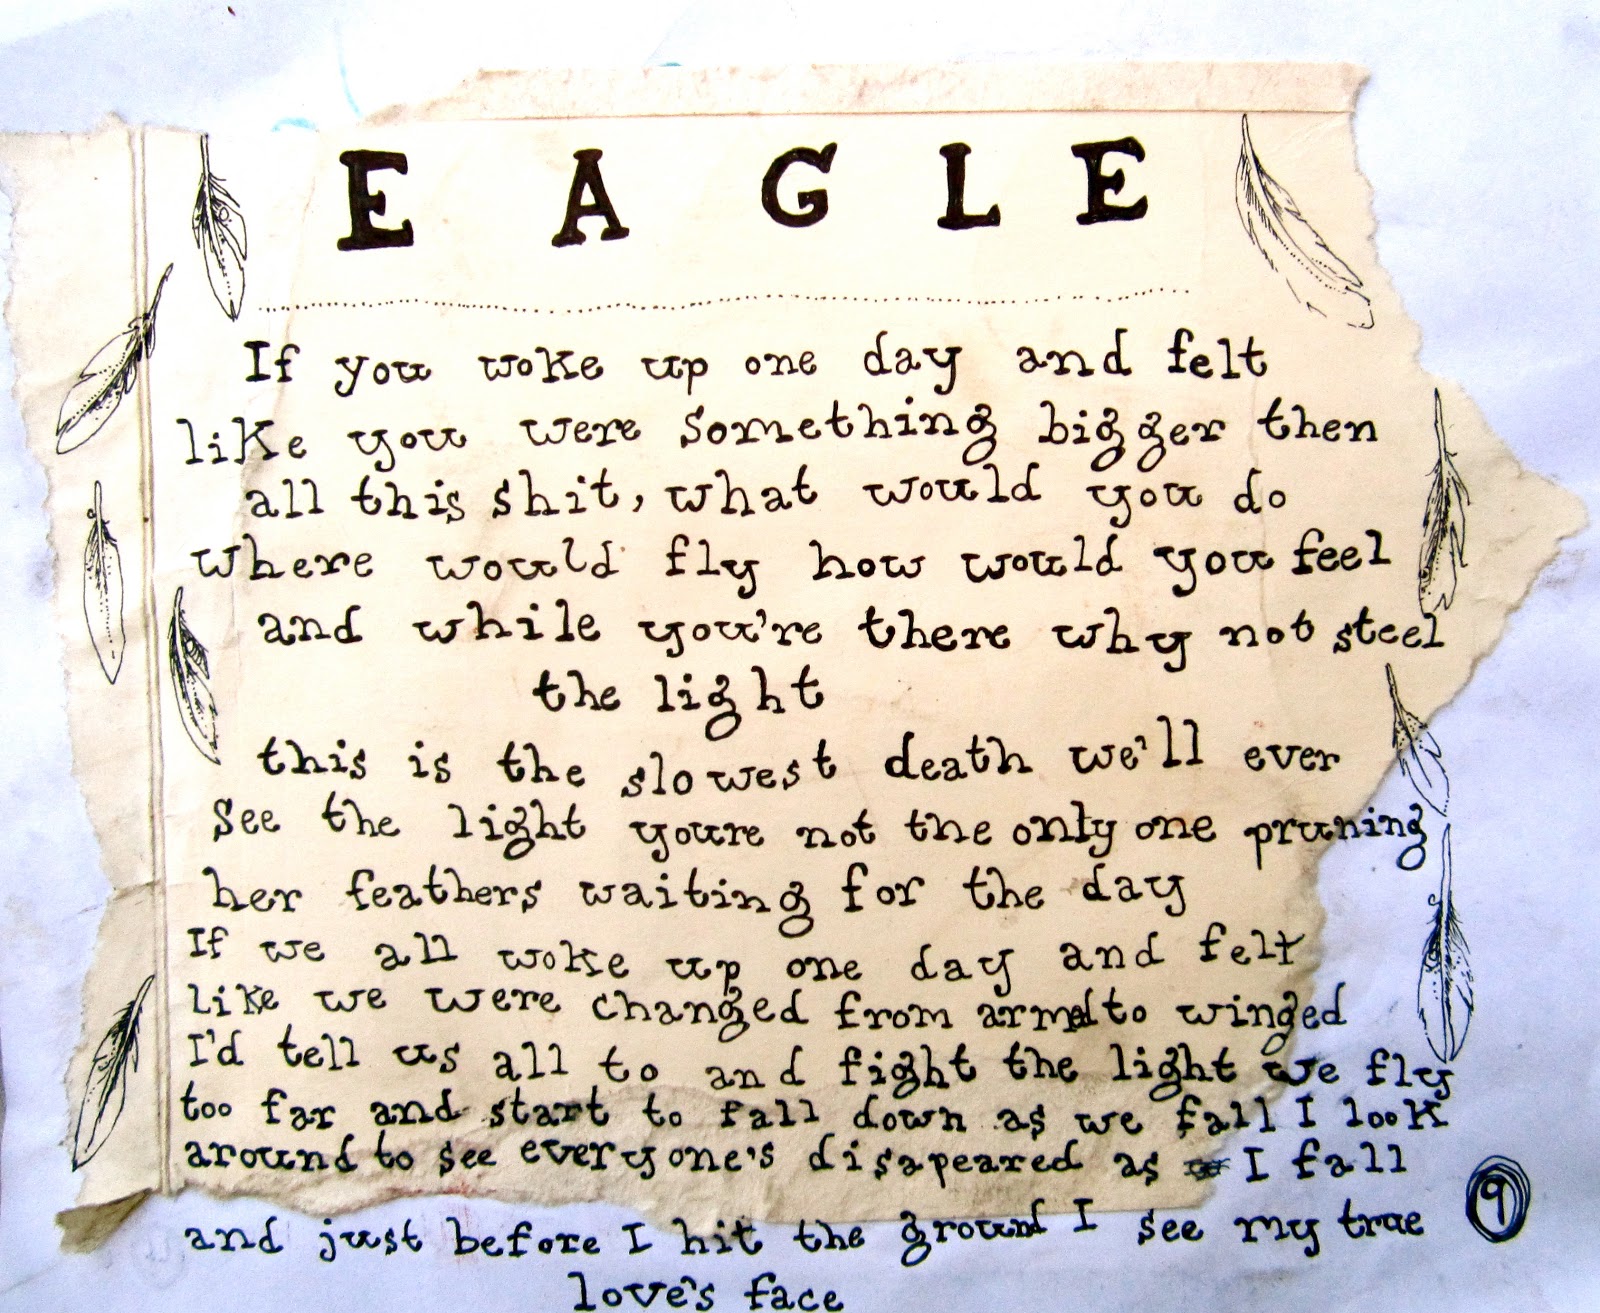 EAGLE
If you woke up one day and felt
like you were something bigger then
all this shit, what would you do
where would fly how would you feel
and while you're there why not steel
the light
this is the slowest death we'll ever
see the light youre not the only one pruning
her feathers waiting for the day
If we all woke up one day and felt
like we were changed from armed to winged
I'd tell us all to and fight the light we fly
too far and start to fall down as we fall I look
around to see everyone's disapeared as I fall
and just before I hit the ground I see my true
love's face
9